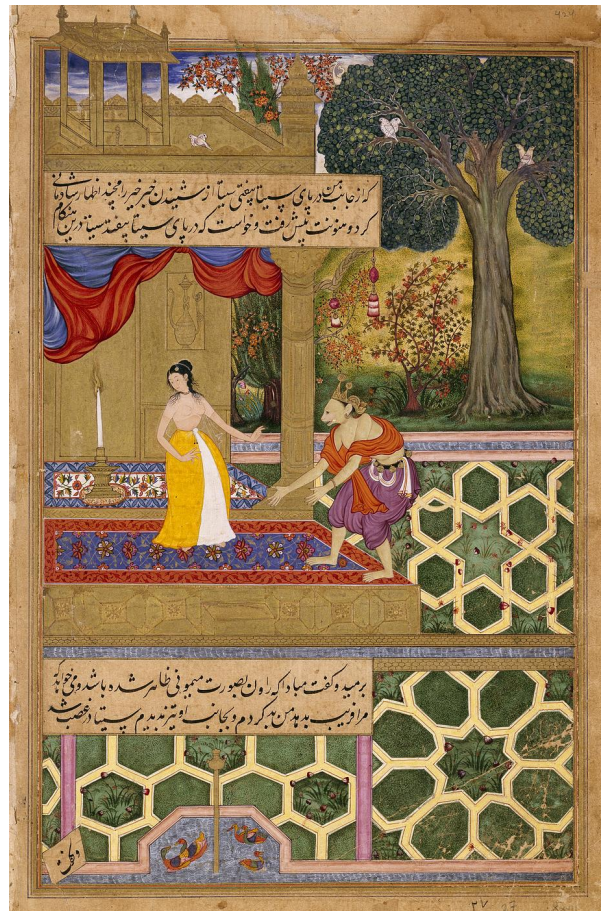 که از جانب من در پای سیتا بیفتی سیتا از شنیدن خبر خیر رامچند اظهار شادمانی
کرد و منونت پیش رفت و خواست که در پای سیتا بیفتد سیتا درین هنگام
برمید و گفت مبادا که راون بصورت میمونی ظاهر شده باشد و می‌خواهد که
مرا فریب بدهد من نه کردم و بجانب او تیز ندیدم سیتا در غضب شد
۲۷ 27